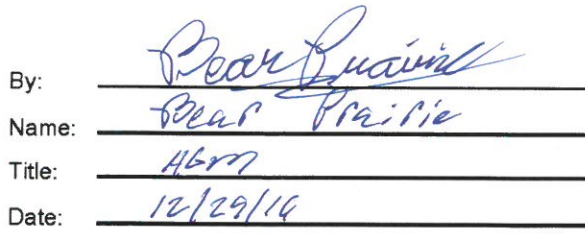 By: Bear Prairie
Name: Bear Prairie
Title: AGM
Date: 12/29/16